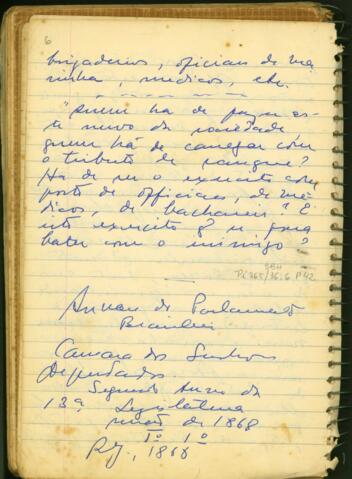 6
brigadeiros, oficiais de ma-
rinha, medicos, etc.
"Quem ha de pagar es-
te nervo da sociedade,
quem ha de carregar com
o tributo de sangue?
Ha de ser o exercito com-
posto de officiaes, de me-
dicos, de bachareis? É
este exercito q se
bater com o inimigo?
SBH
Pi 265/36:6 P42
Annaes do Parlamento
Brasileiro
Camara dos Senhores
Deputados.
Segundo Anno da
13ª Legislatura
sessão de 1868
Iº 1º
RJ., 1868